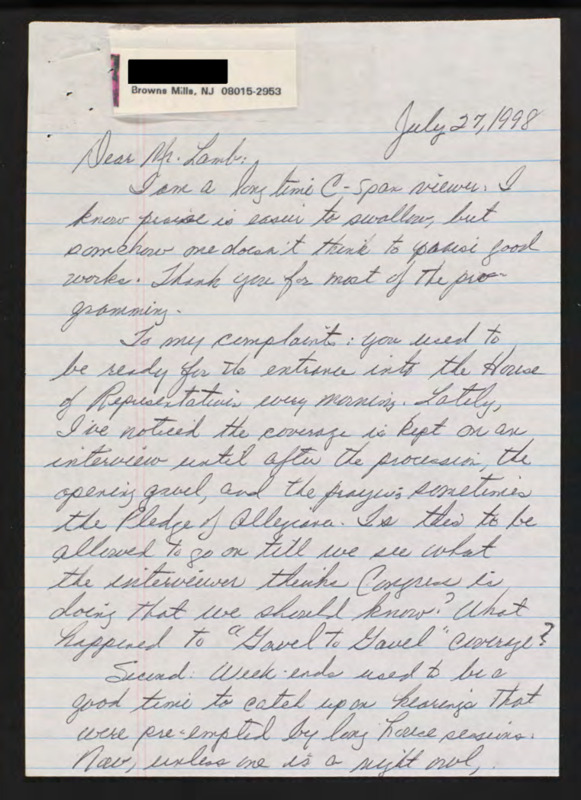 Browns Mills, NJ 08015-2953
July 27, 1998
Dear Mr. Lamb:
I am a long time C-Span viewer. I
know praise is easier to swallow, but
somehow one doesn't think to praise good
works. Thank you for most of the pro-
gramming.
To my complaints: you used to
be ready for the entrance into the House
of Representatives every morning. Lately,
I've noticed the coverage is kept on an
interview until after the procession, the
opening gavel, and the prayer; sometimes
the Pledge of Allegiance. Is this to be
allowed to go on till we see what
the interviewer thinks Congress is
doing that we should know? What
happened to "Gavel to Gavel" coverage?
Second: Week-ends used to be a
good time to catch up on hearings that
were pre-empted by long house sessions.
Now, unless one is a night owl,